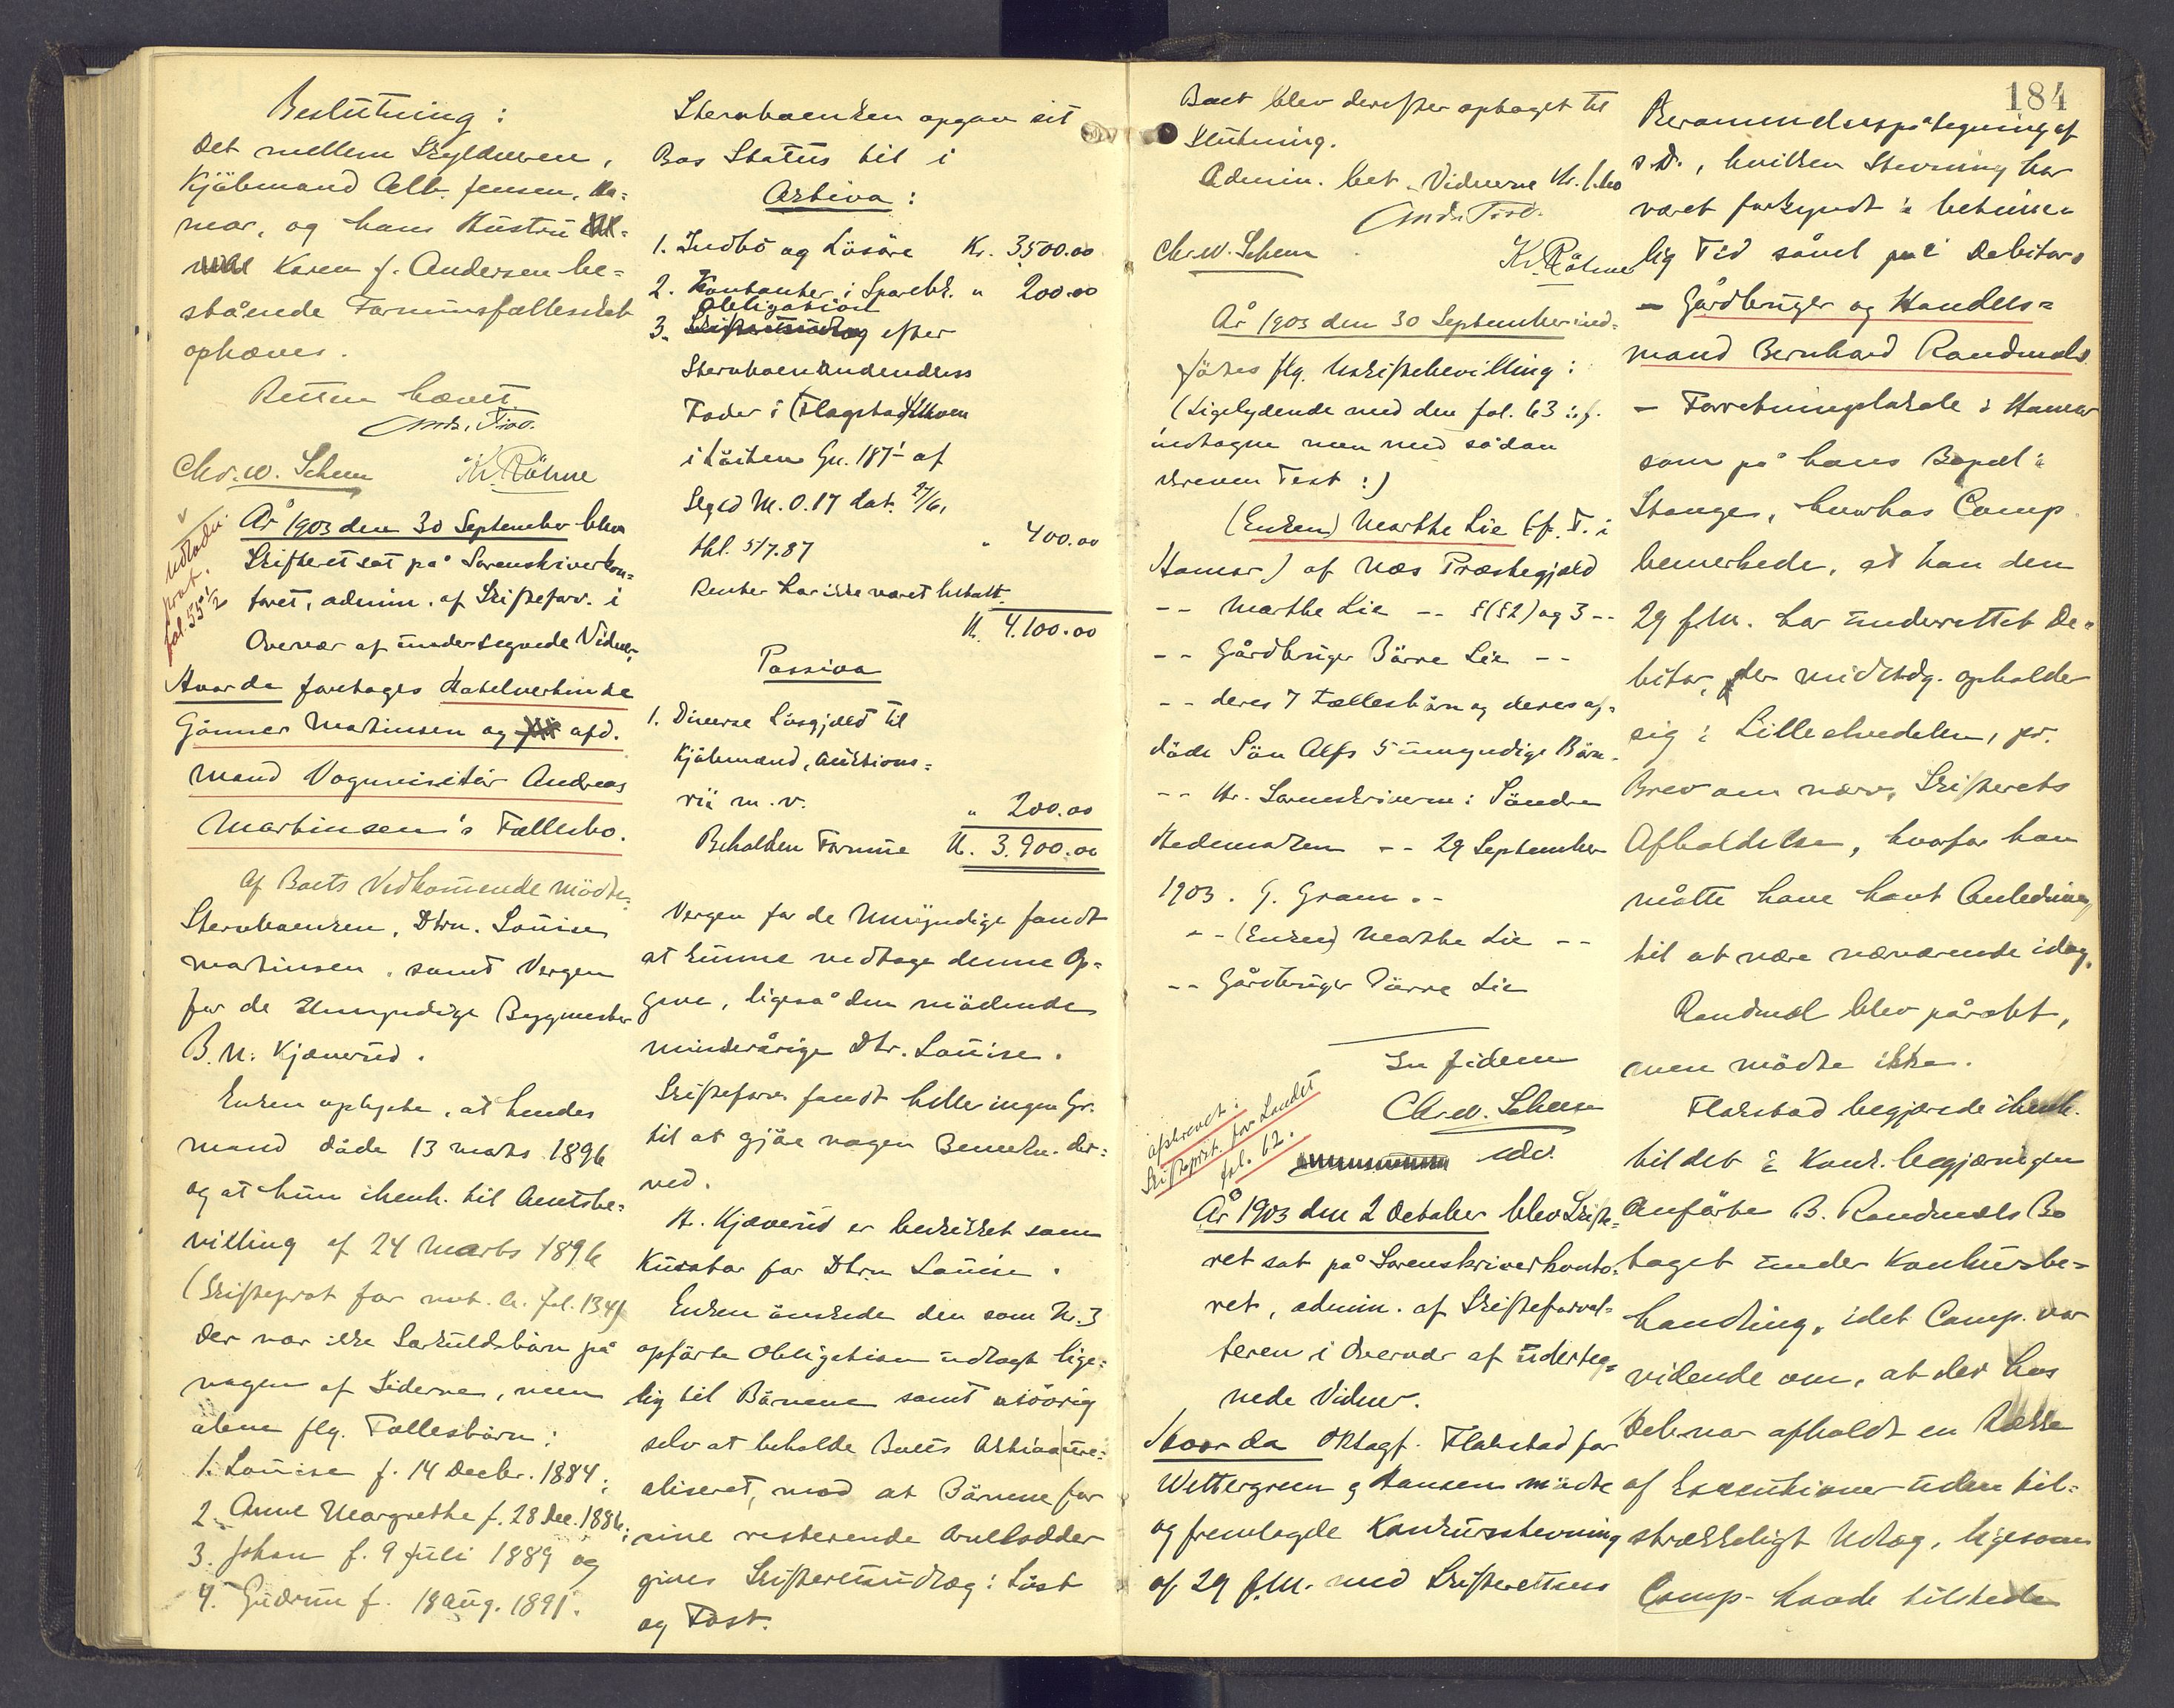 Beslutning:
Det mellem Skylderen,
Kjöbmand Alb. Jensen, Ha=
mar, og hans Hustru
Karen f. Andersen be=
stående Formuesfællesskab
ophæves.
Retten hævet
Ands. Fivd.
Chr. W. Scheen Kr. Röhne
Udlodn.
prot.
fol. 55 1/2
År 1903 den 30 September blev
Skifteret sat på Sorenskriverkon=
toret, admin. af Skifteforv. i
Overvær af undertegnede Vidner,
Hvorda foretoges
Gunner Martinsen og afd.
Mand Vognvisitör Andreas
Martinsen's Fællesbo.
Af Boets Vedkommende mödte
Stervboenken, Dtrn. Louise
Martinsen, samt Vergen
for de Umyndige Bygmester
B. N. Kjæverud.
Enken oplyste, at hendes
Mand döde 13 Mats 1896
og at hun ihenh. til Amtsbe=
villing af 24 Marts 1896
(Skifteprot for fol. 134)
Der var ikke Særkuldsbörn på
nogen af Siderne, men
alene flg. Fællesbörn:
1. Louise f. 14 Decbr. 1884;
2. Anne Margrethe f. 28 Dec. 1886;
3. Johan f. 9 Juli 1889 og
4. Gudrun f. 18 Aug. 1891.
Stervboenken opgav sit
Bos Status til i
Aktiva:
1. Indbo og Lösöre Kr. 3,500.00
2. Kontanter i Sparebk. " 200.00
3. Obligation efter
Stervboenkens
Fader i Flagstad
i Löiten Gn. 187 1 af
dat. 27/6,
thl. 5/7.87 " 400.00
Renter har ikke været betalt
Kr. 4.100.00
Passiva
1. Diverse Lösgjæld til
Kjöbmænd, Auktions=
m. v. " 200.00
Beholden Formue Kr. 3.900.00
Vergen for de Umyndige fandt
at kunne vedtage denne Op=
gave, ligeså den mödende
mindreårige Dtr. Louise.
Skifteforv. fandt heller ingen Gr.
til at gjöre nogen Bemerkn. der=
ved.
Kjæverud er beskikket som
Kurator for Dtrn Louise.
Enken önskede den som Nr. 3
opförte Obligation udlagt lige=
lig til Börnene samt iövrig
selv at beholde Boets Aktiva ure=
aliseret, mod at Börnene for
sine resterende Arvelodder
gives Skifteretsudlæg i Löst
og Fast.
Boet blev derefter optaget til
Slutning.
Admin. bet. Vidnerne Kr. 1.60
Ands. Fivd.
Chr. W. Scheen Kr. Röhne
År 1903 den 30 September ind=
föres flg. Uskiftebevilling:
(Ligelydende med den fol. 63 i. f.
indtagne men med sådan
skreven Text:)
(Enken) Marthe Lie (f. T. i
Hamar) af Næs Præstegjæld
-- Marthe Lie -- §(§2) og 3 --
-- Gårdbruger Börre Lie --
-- deres 7 Fællesbörn og deres af=
döde Sön Alfs 5 umyndige Börn.
-- Hr. Sorenskriveren i Söndre
Hedemarken -- 29 September
1903. G. Gram. -
-- (Enken) Marthe Lie --
-- Gårdbruger Börre Lie
In fidem
Chr. W. Scheen
edv.
afskrevet i
Skifteprot. for Landet
fol. 62.
År 1903 den 2 October blev Skifte=
ret sat på Sorenskriverkonto=
ret, admin. af Skifteforval=
teren i Overvær af underteg=
nede Vidner.
Hvorda Flakstad for
Wettergreen og Hansen mödte
og fremlagde Konkursstevning
af 29 f. M. med Skifterettens
184
Berammelsespåtegning af
s. D., hvilken Stevning har
været forkyndt i betime=
lig Tid såvel på i Debitors
— Gårdbruger og Handels=
mand Bernhard Randmæls
— Forretningslokale i Hamar
som på hans Bopæl i
Stange, hvorhos Comp.
bemerkede, at han den
29 f. M. har underrettet De=
bitor, der midltdg. opholder
sig i Lilleelvedalen, pr.
Brev om nærv. Skifterets
Afholdelse, hvorfor han
måtte have havt Anledning
til at være nærværende idag.
Randmæl blev påråbt,
men mödte ikke.
Flakstad begjærede ihenh.
til det i Konk. begjæringen
Anförte B. Randmæls Bo
taget under Konkursbe=
handling, idet Comp. var
vidende om, at der hos
Deb. var afholdt en Række
af Executioner uden til=
strækkeligt Udlæg, ligesom
Comp. havde tilstede